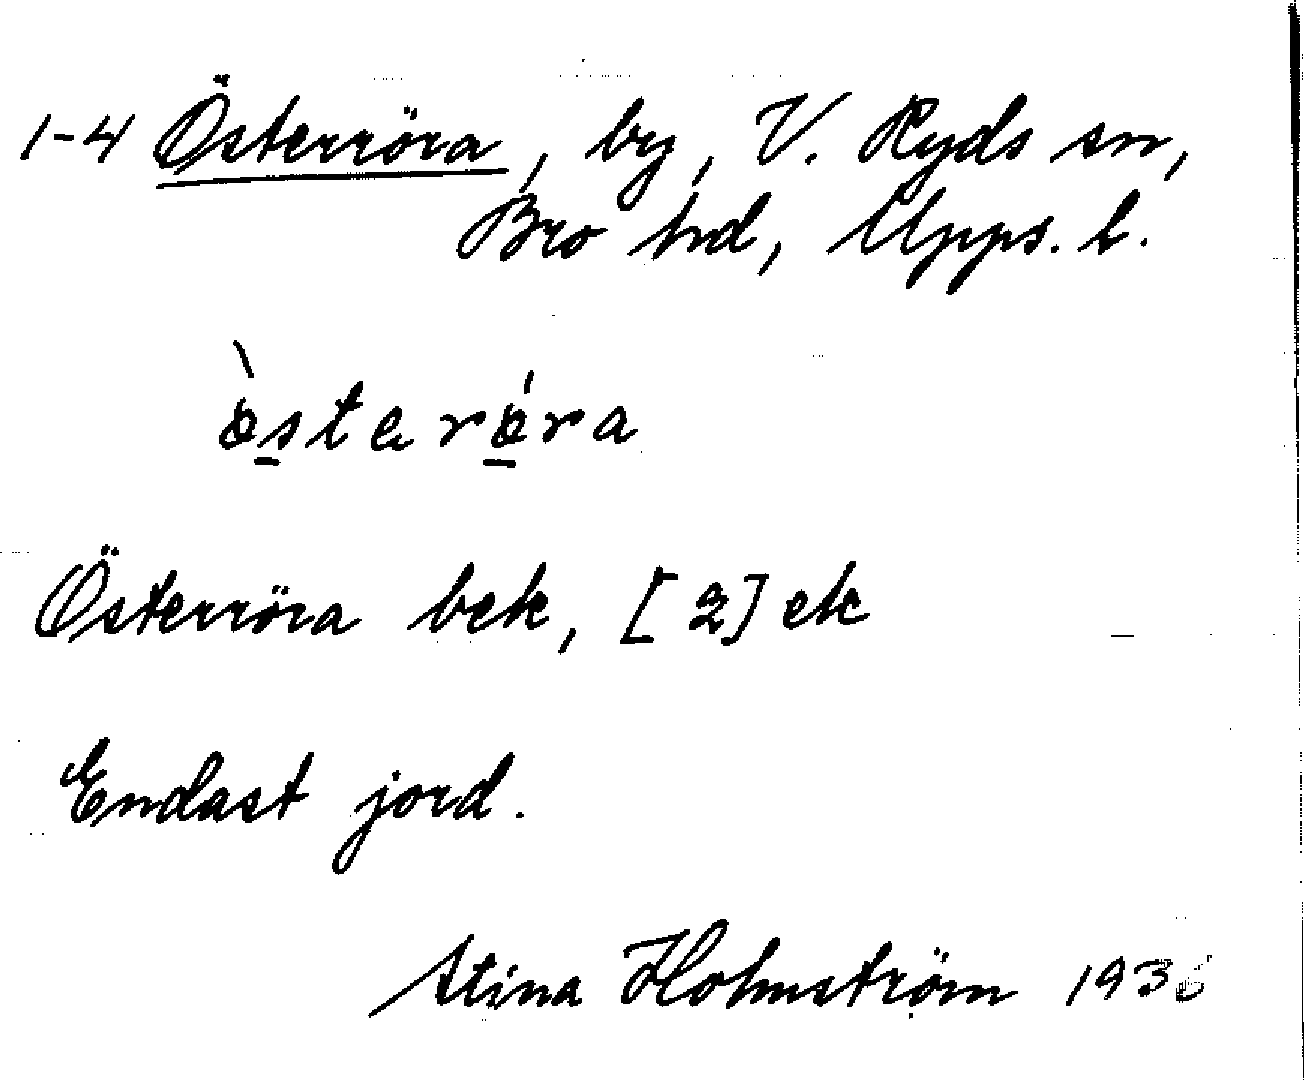 1-4 Österröra, by, V. Ryds sn,
Bro hd, Upps. l.
ö̀sterö́ra
Österröra bek, [2] ek
Endast jord.
Stina Holmström 1936